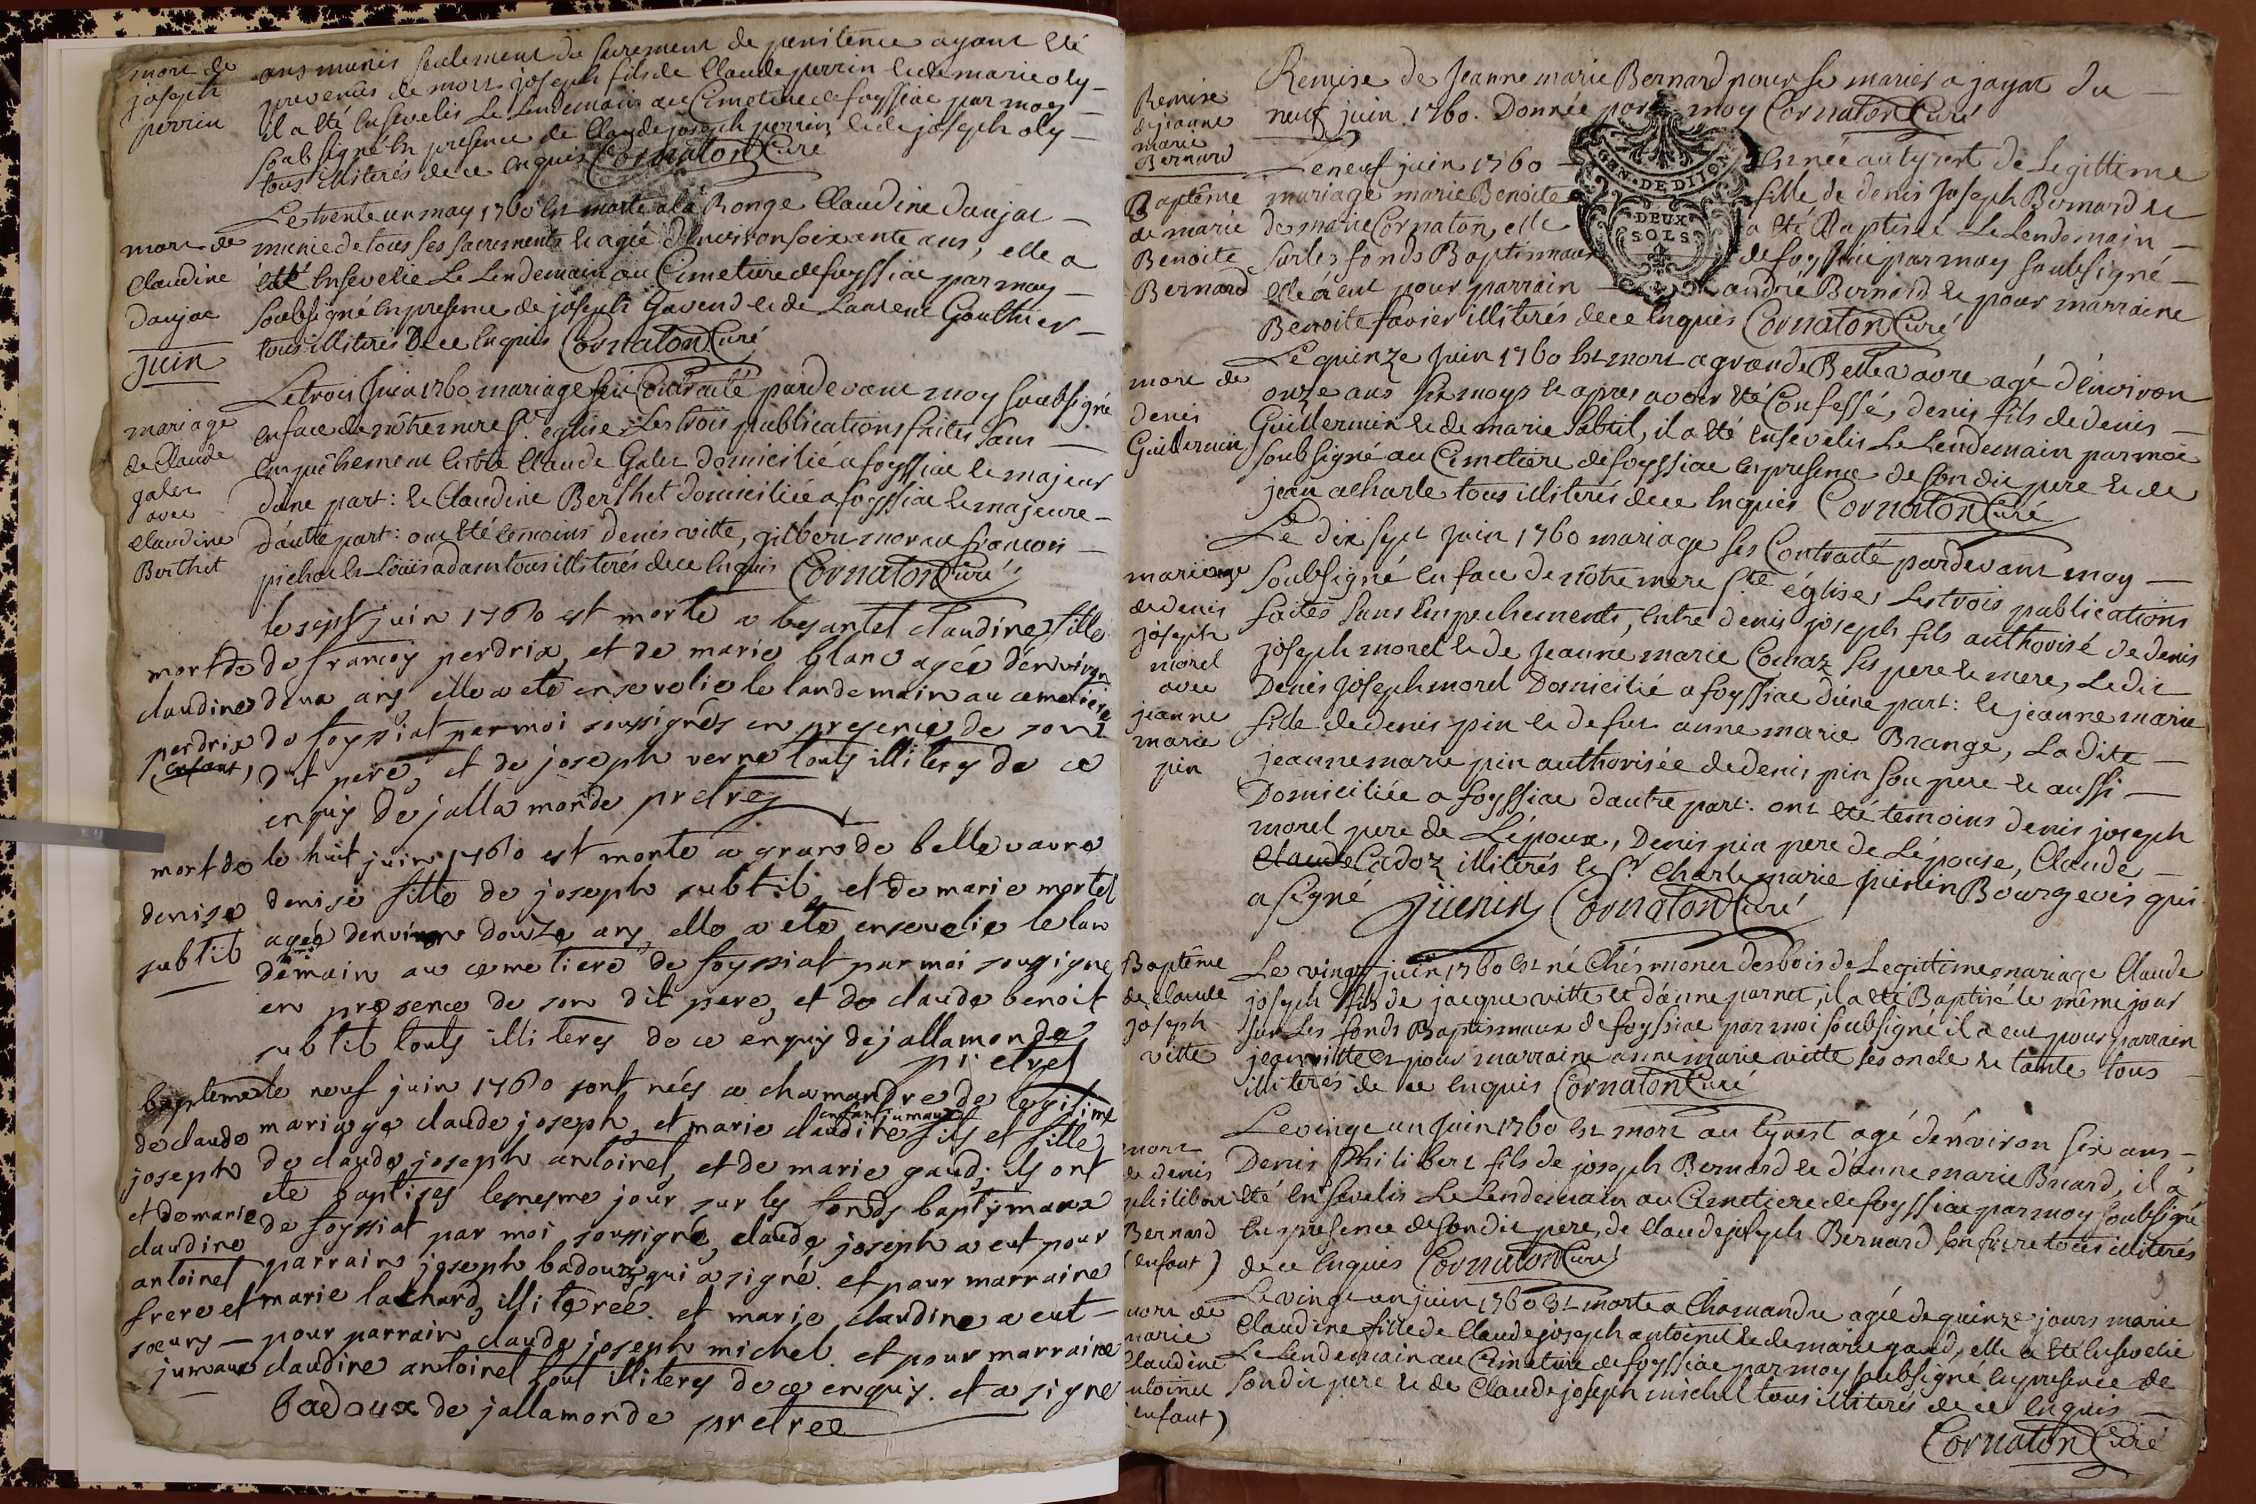 mort de
joseph
perrin
ans munis seulement du sacrement de penitence ayant été
prevenus de mort joseph fils de Claude perrin et de marie oly –
il a été Ensevelis Le Lendemain au Cimetiere de foyssiac par moy –
soubsigné En presence de Claude joseph perrin et de joseph oly –
tous illiterés de ce Enquis Cornaton Curé
mort de
Claudine
danjac
Le trente un may 1760 Est morte a la Ronge Claudine danjac –
munie de tous ses sacrements et agée d'Environ soixante ans, elle a
été Ensevelie Le Lendemain au Cimetiere de foyssiac par moy –
soubsigné En presence de joseph Gavend et de Laurent Gouthier –
tous illiterés de ce Enquis Cornaton Curé
juin
mariage
de Claude
galet
avec
Claudine
Berthet
Le trois Juin 1760 mariage fut Contracté pardevant moy soubsigné
En face de nôtre mere Ste eglise, Les trois publications faites sans –
Empêchement Entre Claude Galet domicilié a foyssiac et majeur
d'une part : et Claudine Berthet domiciliée a foyssiac et majeure –
d'autre part : ont été temoins denis vitte, gilbert moreau francois –
pichat et Loüis adam tous illiterés de ce Enquis Cornaton Curé
mort de
claudine
perdrix
(enfant)
le sept juin 1760 est morte a besantel claudine fille
de francoy perdrix, et de marie blanc agée d'environ
deux ans elle a eté ensevelie le landemain au cemetiere
de foyssiat par moi soussignés en presence de son
dit pere, et de joseph verne touts illiterés de ce
enquis de jallamonde pretre
mort de
denise
subtil
le huit juin 1760 est morte a grande bellevavre
denise fille de joseph subtil, et de marie mortel
agée denviron douze ans, elle a eté ensevelie le lan
demain au cemetiere de foyssiat par moi soussigne
en presence de son dit pere, et de claude benoit
subtil touts illiteres de ce enquis dejallamonde
pretre
bapteme
de claude
joseph
et de marie
claudine
antoinet
frere et
soeurs –
jumaux
le neuf juin 1760 sont nées a chamandre de legitime
mariage claude joseph, et marie claudine enfant jumaux fils et fille
de claude joseph antoinet, et de marie gaud; ils ont
eté baptises le mesme jour sur les fonds baptismaux
de foyssiat par moi soussigné, claude joseph a eut pour
parrain joseph badoux qui a signé. et pour marraine
marie lachard, illiterée. et marie claudine a eut –
pour parrain claude joseph michel. et pour marraine
claudine antoinet tout illiterés de ce enquis. et a signe
Badoux de jallamonde pretre
Remise
de jeanne
marie
Bernard
Remise de Jeanne marie Bernard pour se marier a jayat du –
neuf juin 1760. Donnée par moy Cornaton Curé
GEN. DE DIJON
DEUX
SOLS
Baptême
de marie
Benoite
Bernard
Le neuf juin 1760 – Est née au tyrest de Legittime
mariage marie Benoite fille de denis Joseph Bernard et
de marie Cornaton, elle a été Baptisée Le Lendemain –
sur les fonds Baptismaux de foyssiac par moy soubsigné –
elle a eut pour parrain – andré Bernard et pour marraine
Benoite favier illiterés de ce Enquis Cornaton Curé
mort de
denis
Guillermin
Le quinze Juin 1760 Est mort a grande Bellevavre agé d'énviron
onze ans six moys et apres avoir été Confessé, denis fils de denis –
Guillermin et de marie Subtil, il a été Ensevelis Le Lendemain par moi
soubsigné au Cimetiere de foyssiac En presence de son dit pere et de
jean acharle tous illiterés de ce Enquis Cornaton Curé
mariage
de denis
joseph
morel
avec
jeanne
marie
pin
Le dix sept Juin 1760 mariage fut Contracté pardevant moy –
soubsigné En face de nôtre mere Ste église, Les trois publications
faites sans Empechements, Entre denis joseph fils authorisé de denis
joseph morel et de Jeanne marie Comaz ses pere et mere, Ledit
Denis Joseph morel Domicilié a foyssiac d'une part : et jeanne marie
fille de denis pin et de fut anne marie Brange, La dite –
jeanne marie pin authorisée de denis pin son pere et aussi –
Domiciliée a foyssiac d'autre part : ont été temoins denis joseph
morel pere de L'époux, Denis pin pere de L'épouse, Claude –
Claude Cadoz illiterés et Sr Charle marie Juenin Bourgeois qui
a signé Jüenin Cornaton Curé
Baptême
de claude
joseph
vitte
Le vingt juin 1760 Est né Chés moner des bois de Legittime mariage Claude
joseph fils de jacque vitte et d'anne parnet, il a été Baptisé le même jour
sur Les fonds Baptismaux de foyssiac par moi soubsigné il a eut pour parrain
jean vitte et pour marraine anne marie vitte ses oncle et tante tous –
illiteres de ce Enquis Cornaton Curé
mort
de denis
philibert
Bernard
(enfant)
Le vingt un Juin 1760 Est mort au tyrest agé d'énviron six ans –
Denis Philibert fils de joseph Bernard et d'anne marie Buard, il a
été Ensevelis Le Lendemain au Cimetiere de foyssiac par moy soubsigné
En presence de son dit pere, de Claude joseph Bernard son frere tous illiterés
de ce Enquis Cornaton Curé
mort de
marie
Claudine
antoinet
enfant)
Le vingt un juin 1760 Est morte a Chamandre agée de quinze jours marie
Claudine fille de Claude joseph antoinet et de marie gaud, elle a été Ensevelie
Le Lendemain au Cimetiere de foyssiac par moy soubsigné En presence de
son dit pere et de Claude joseph michel tous illiterés de ce Enquis –
Cornaton Curé